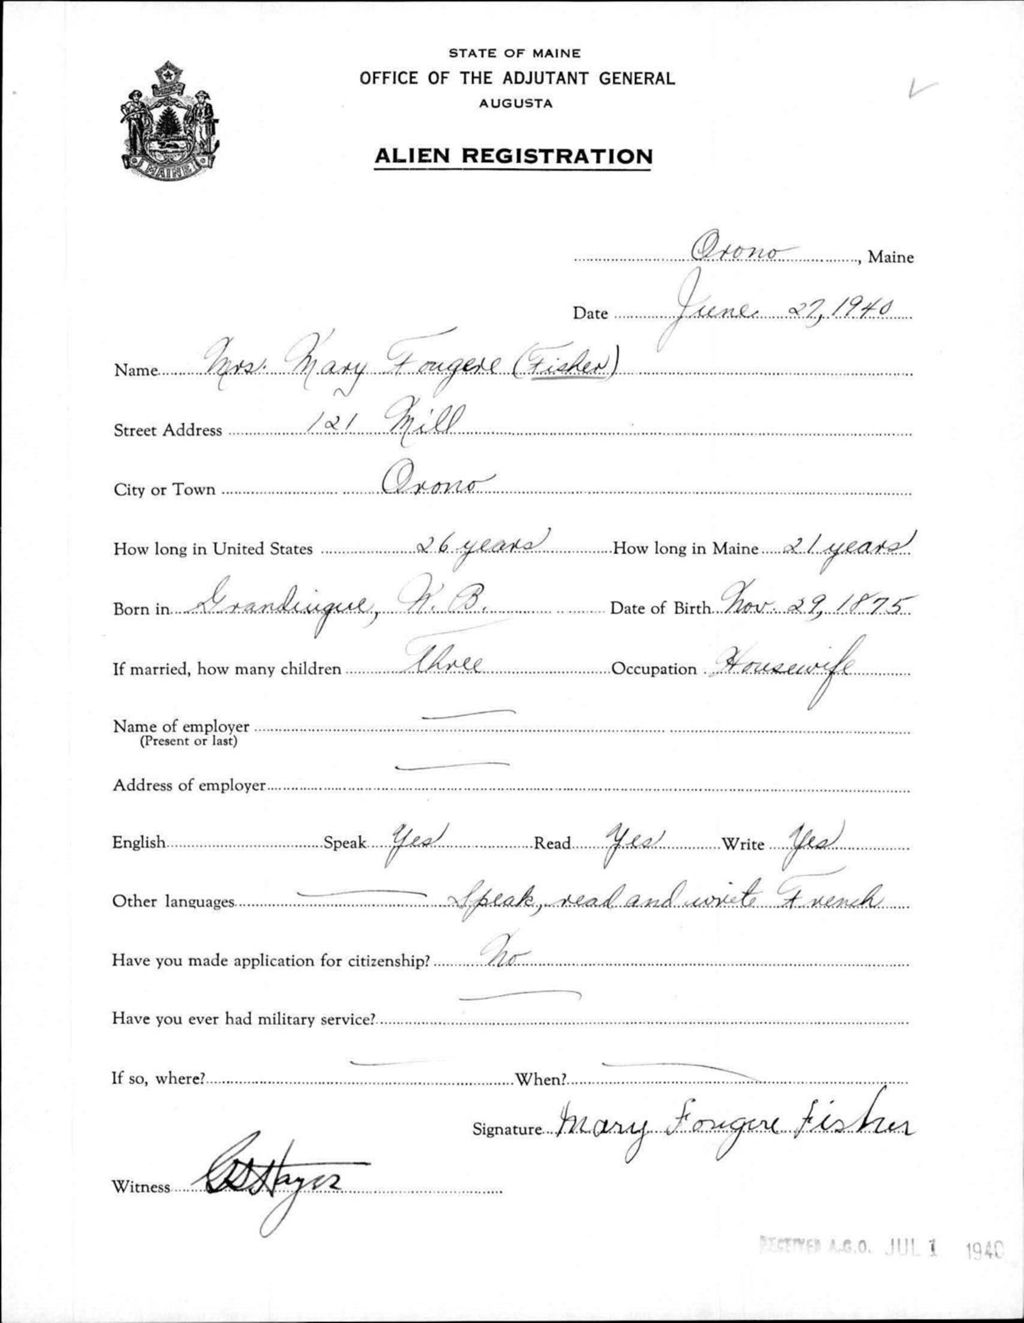 STATE OF MAINE
OFFICE OF THE ADJUTANT GENERAL
AUGUSTA
ALIEN REGISTRATION
MAINE
Orono, Maine
Date June 27, 1940
Name Mrs. Mary Fougere (Fisher)
Street Address 121 Mill
City or Town Orono
How long in United States 26 years How long in Maine 21 years
Born in Grandingue, N. B. Date of Birth Nov. 29, 1875
If married, how many children Three Occupation Housewife
Name of employer
(Present or last)
Address of employer
English Speak Yes Read Yes Write Yes
Other languages Speak, read and write French
Have you made application for citizenship? No
Have you ever had military service?
If so, where? When?
Signature Mary Fougere Fisher
Witness
RECEIVED A.G.O. JUL 1 1940